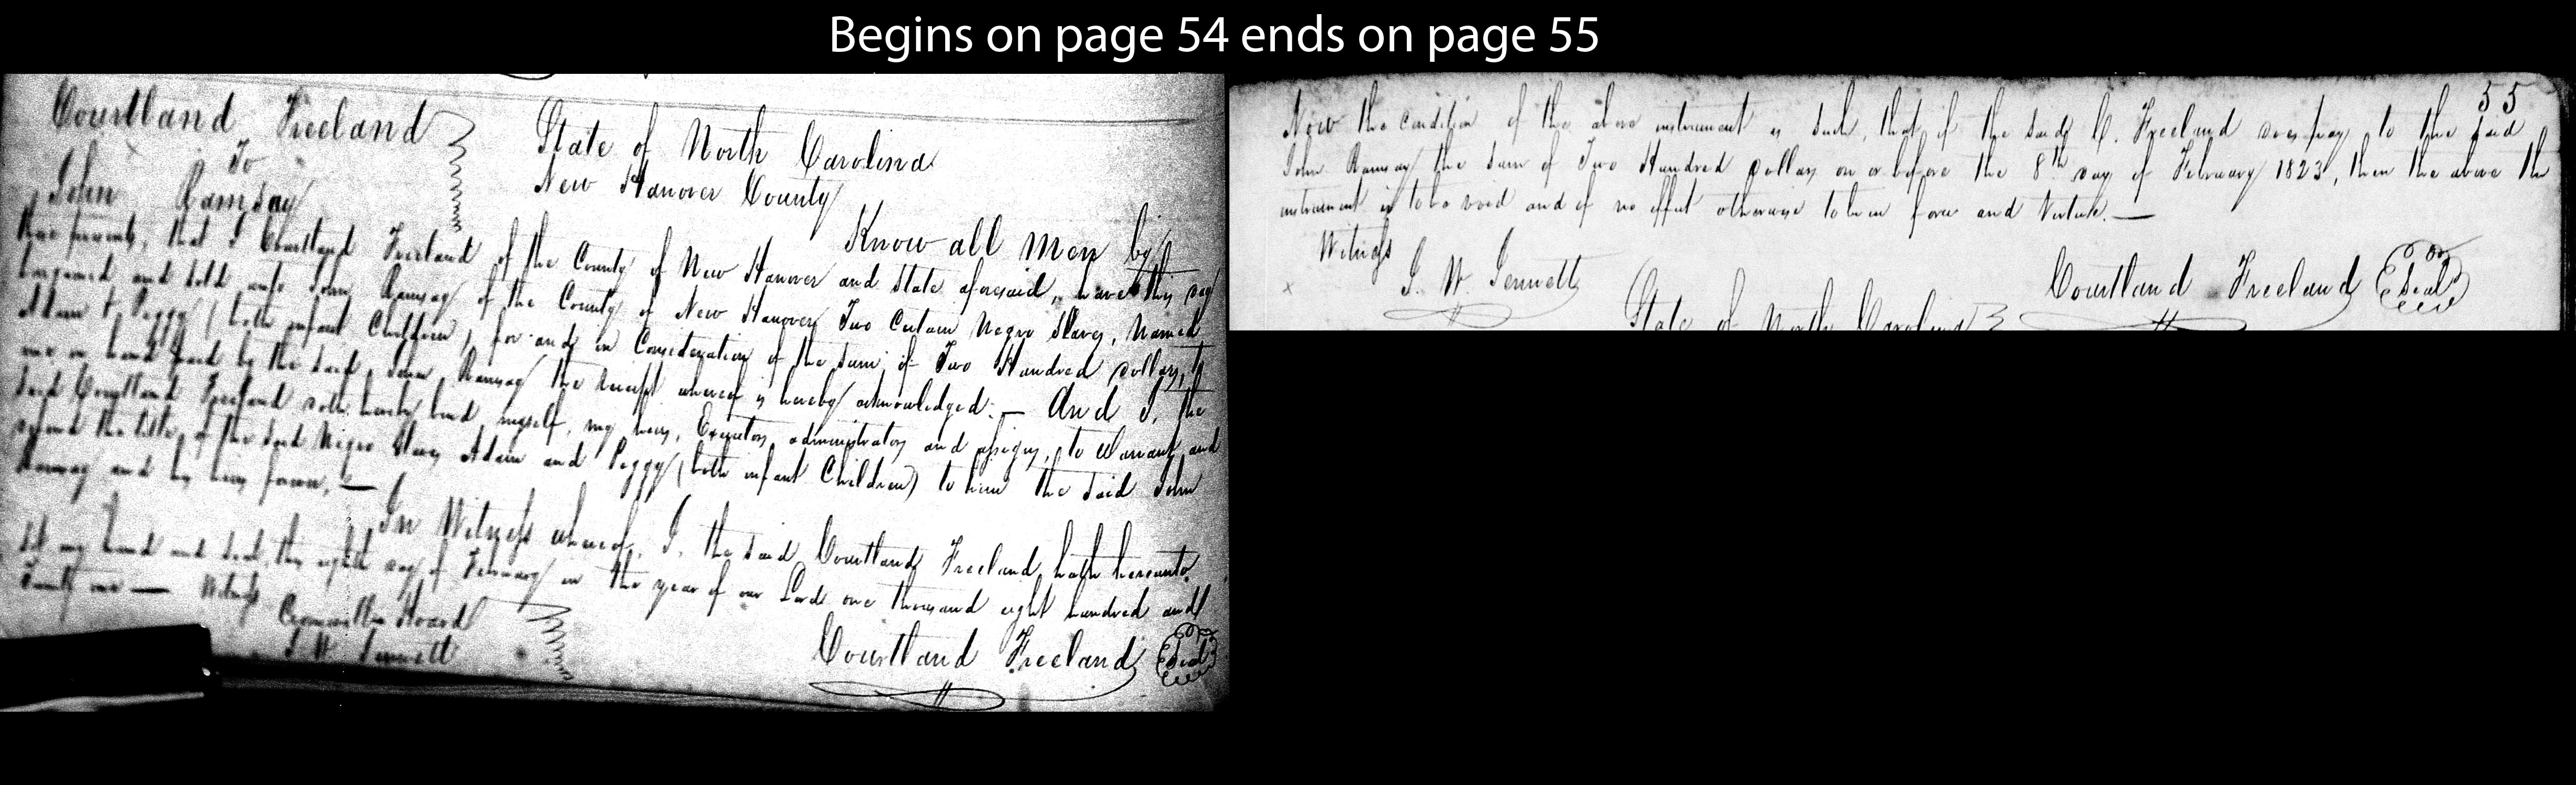 Begins on page 54 ends on page 55
Courtland Freeland
To
John Ramsay
State of North Carolina
New Hanover County
Know all men by
these presents, that I Courtland Freeland of the County of New Hanover and State aforesaid, have this day
bargained and sold unto John Ramsay of the County of New Hanover Two Certain Negro Slaves, Named
Adam & Peggy (both infant Children) for and in Consideration of the sum of Two Hundred dollars, to
me in hand paid by the said John Ramsay the receipt whereof is hereby acknowledged. — And I, the
said Courtland Freeland doth hereby bind myself, my heirs, Executors, administrators and assigns, to Warrant and
defend the title of the said Negro Slaves Adam and Peggy (both infant Children) to him the said John
Ramsay and his heirs forever. —
In Witness whereof, I, the said Courtland Freeland hath hereunto
set my hand and seal, this eighth day of February in the year of our Lord one thousand eight hundred and
twenty one — Witness
Hoard
J. W. Jennett
Courtland Freeland Seal
55
Now the condition of the above instrument is such, that if the said C. Freeland does pay to the said
John Ramsay the sum of Two Hundred dollars on or before the 8th day of February 1823, then the above the
instrument is to be void and of no effect otherwise to be in force and Virtue. —
Witness
J. W. Jennett
Courtland Freeland Seal
State of North Carolina